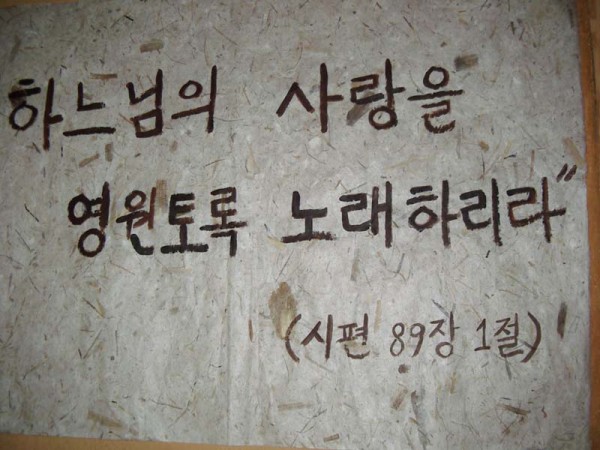 하느님의 사랑을
영원토록 노래하리라”
(시편 89장 1절)